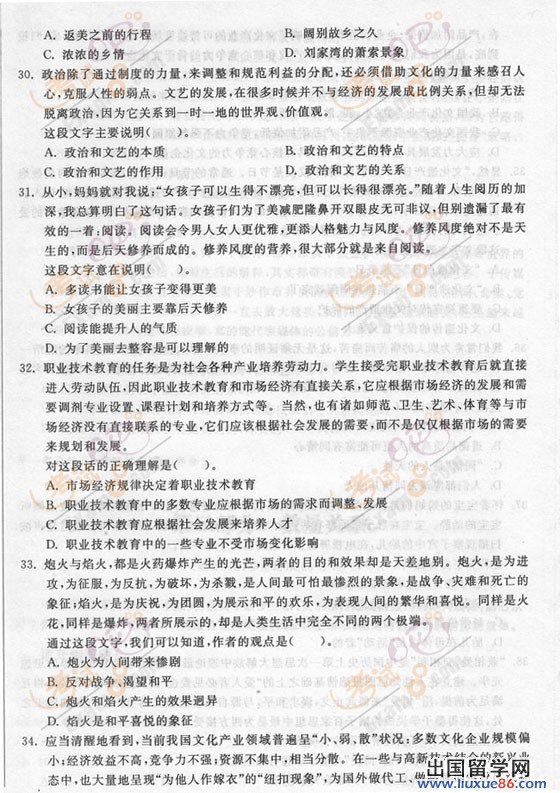 A. 返美之前的行程 B. 阔别故乡之久
C. 浓浓的乡情 D. 刘家湾的萧索景象
30. 政治除了通过制度的力量,来调整和规范利益的分配,还必须借助文化的力量来感召人
心,克服人性的弱点。文艺的发展,在很多时候并不与经济的发展成比例关系,但却无法
脱离政治,因为它关系到一时一地的世界观、价值观。
这段文字主要说明( )。
A. 政治和文艺的本质 B. 政治和文艺的特点
C. 政治和文艺的作用 D. 政治和文艺的关系
31. 从小,妈妈就对我说:“女孩子可以生得不漂亮,但可以长得很漂亮。”随着人生阅历的加
深,我总算明白了这句话。女孩子们为了美减肥隆鼻开双眼皮无可非议,但别遗漏了最有
效的一着:阅读。阅读会令男人女人更优雅,更添人格魅力与风度。修养风度绝对不是天
生的,而是后天修养而成的。修养风度的营养,很大部分就是来自阅读。
这段文字意在说明( )。
A. 多读书能让女孩子变得更美
B. 女孩子的美丽主要靠后天修养
C. 阅读能提升人的气质
D. 为了美丽去整容是可以理解的
32. 职业技术教育的任务是为社会各种产业培养劳动力。学生接受完职业技术教育后就直接
进入劳动队伍,因此职业技术教育和市场经济有直接关系,它应根据市场经济的发展和需
要调剂专业设置、课程计划和培养方式等。当然,也有诸如师范、卫生、艺术、体育等与市
场经济没有直接联系的专业,它们应该根据社会发展的需要,而不是仅仅根据市场的需要
来规划和发展。
对这段话的正确理解是( )。
A. 市场经济规律决定着职业技术教育
B. 职业技术教育中的多数专业应根据市场的需求而调整、发展
C. 职业技术教育应根据社会发展来培养人才
D. 职业技术教育中的一些专业不受市场变化影响
33. 炮火与焰火,都是火药爆炸产生的光芒,两者的目的和效果却是天差地别。炮火,是为进
攻,为征服,为反抗,为破坏,为杀戮,是人间最可怕最惨烈的景象,是战争、灾难和死亡的
象征;焰火,是为庆祝,为团圆,为展示和平的欢乐,为表现人间的繁华和喜悦。同样是火
花,同样是爆炸,两者所展示的,却是人类生活中完全不同的两个极端。
通过这段文字,我们可以知道,作者的观点是( )。
A. 炮火为人间带来惨剧
B. 反对战争、渴望和平
C. 炮火和焰火产生的效果迥异
D. 焰火是和平喜悦的象征
34. 应当清醒地看到,当前我国文化产业领域普遍呈“小、弱、散”状况:多数文化企业规模偏
小;经济效益不高,竞争力不强;资源不集中,相当分散。在一些与高新技术结合的新兴业
态中,也大量地呈现“为他人作嫁衣”的“纽扣现象”,为国外做代工、做
出国留学网
www.liuxue86.com